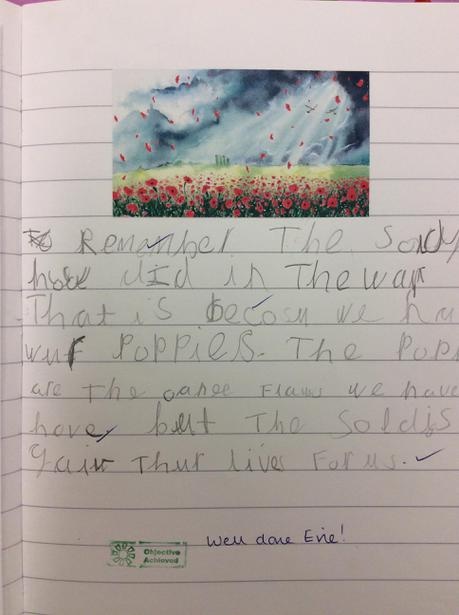 Remember The Soldy
hose did in The war
That is becosu we ha
wur POPPiES. The POP
are The oanee Flaws we have
have, but The Soldis
gaiv Thur lives For us.
Objective
Achieved
Well done Evie!